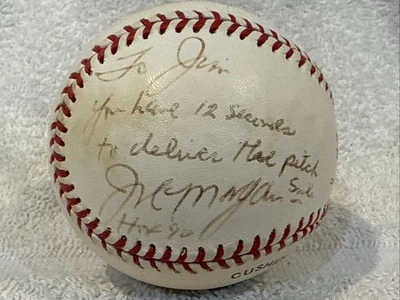 To Jim
You have 12 Seconds
to deliver the pitch
Joe Morgan
HOF 90
CUSH